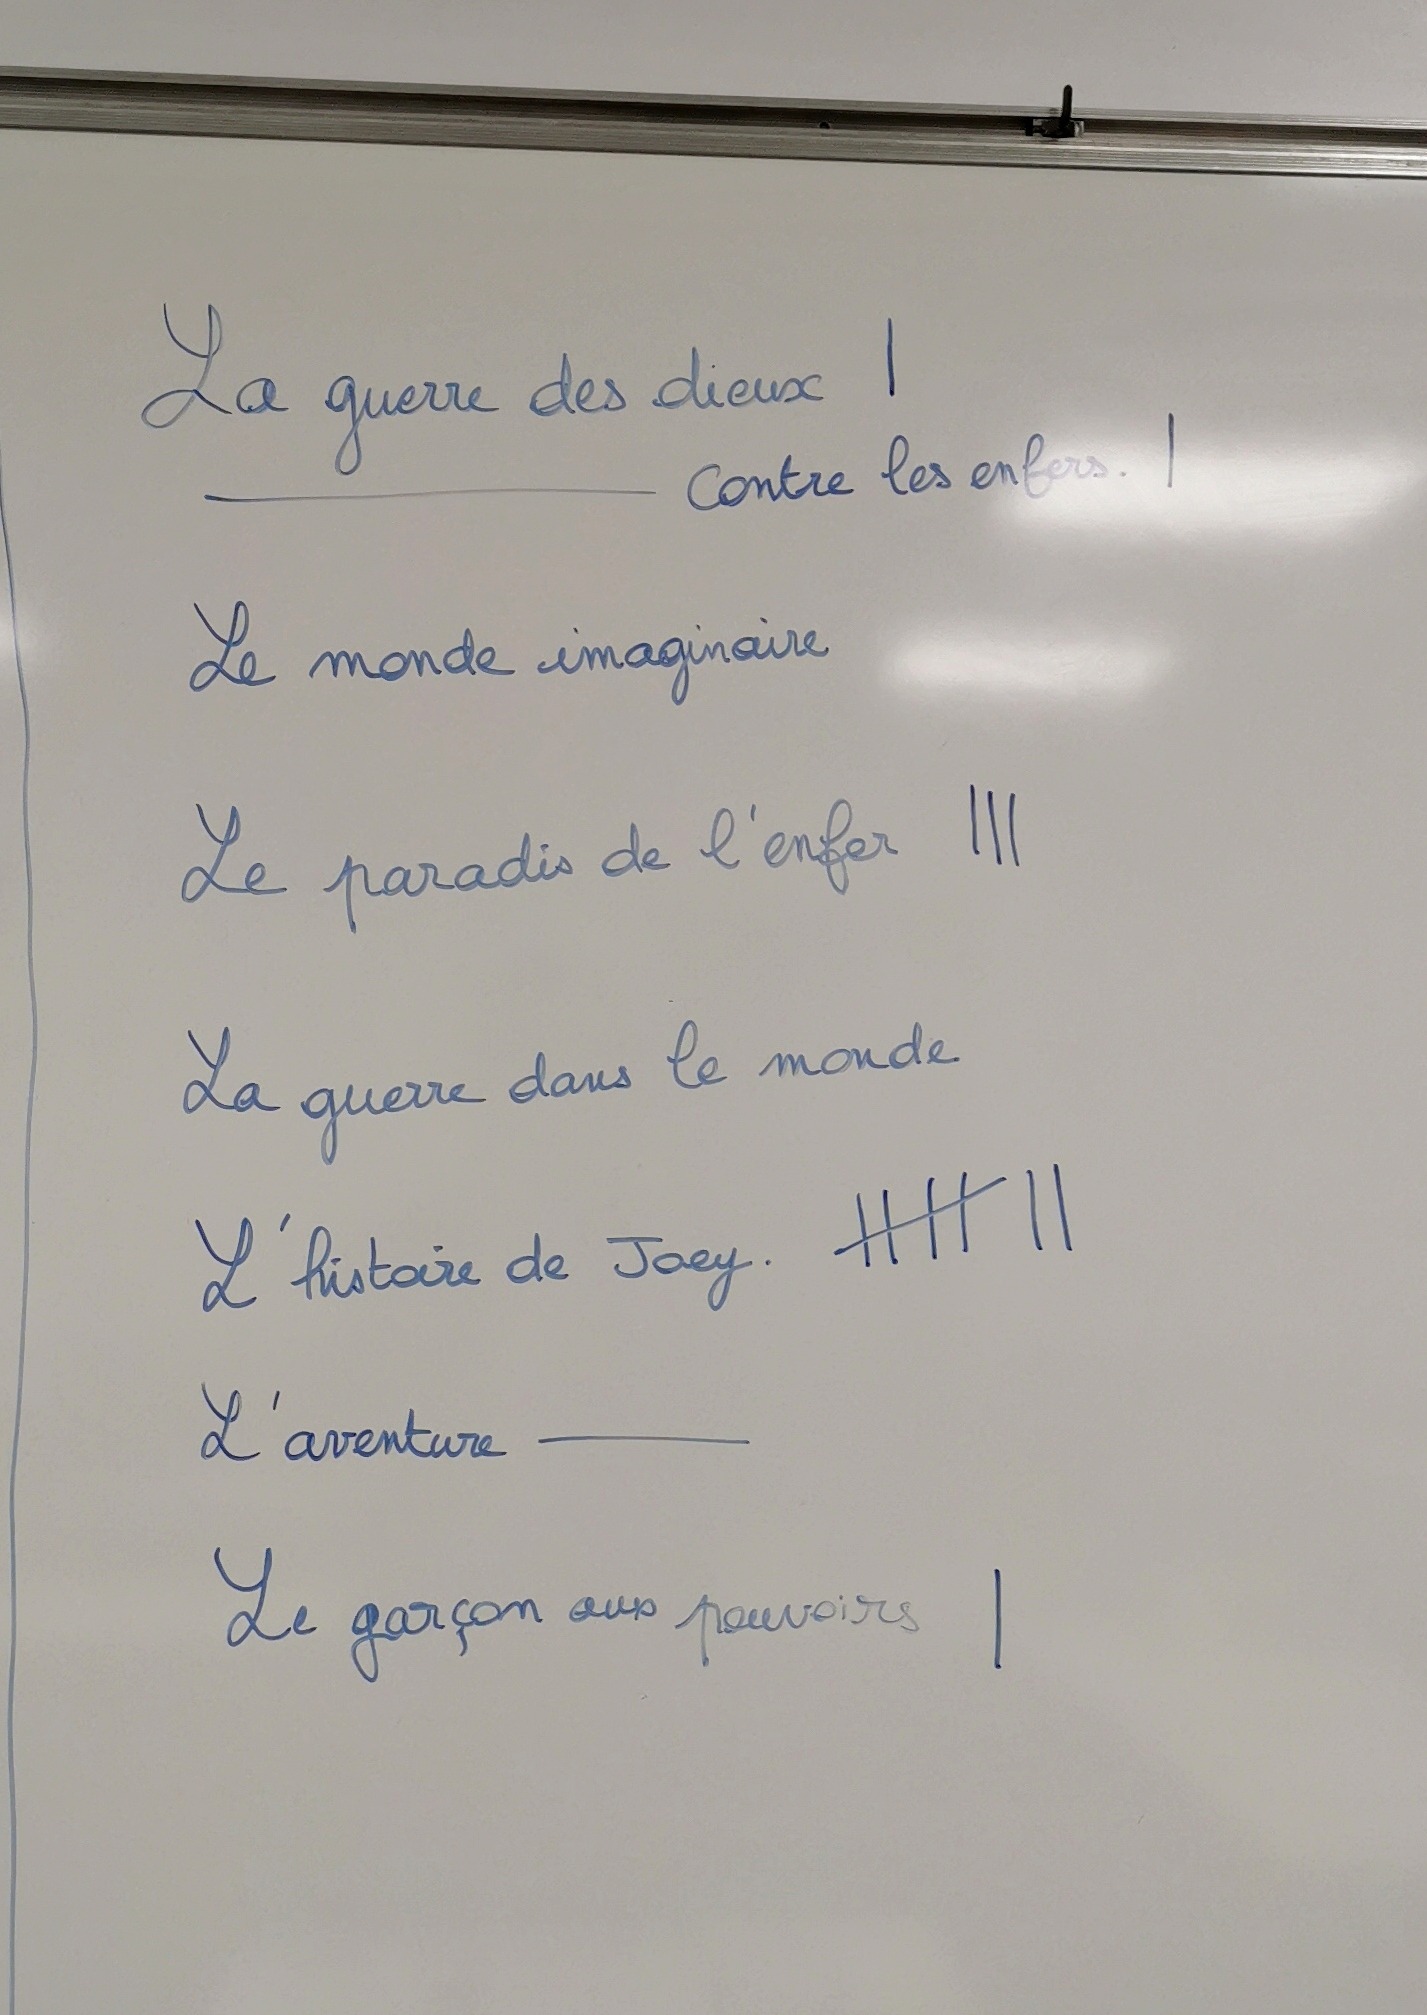 La guerre des dieux |
———— contre les enfers. |
Le monde imaginaire
Le paradis de l'enfer |||
La guerre dans le monde
L'histoire de Joey. |||| ||
L'aventure ————
Le garçon aux pouvoirs |